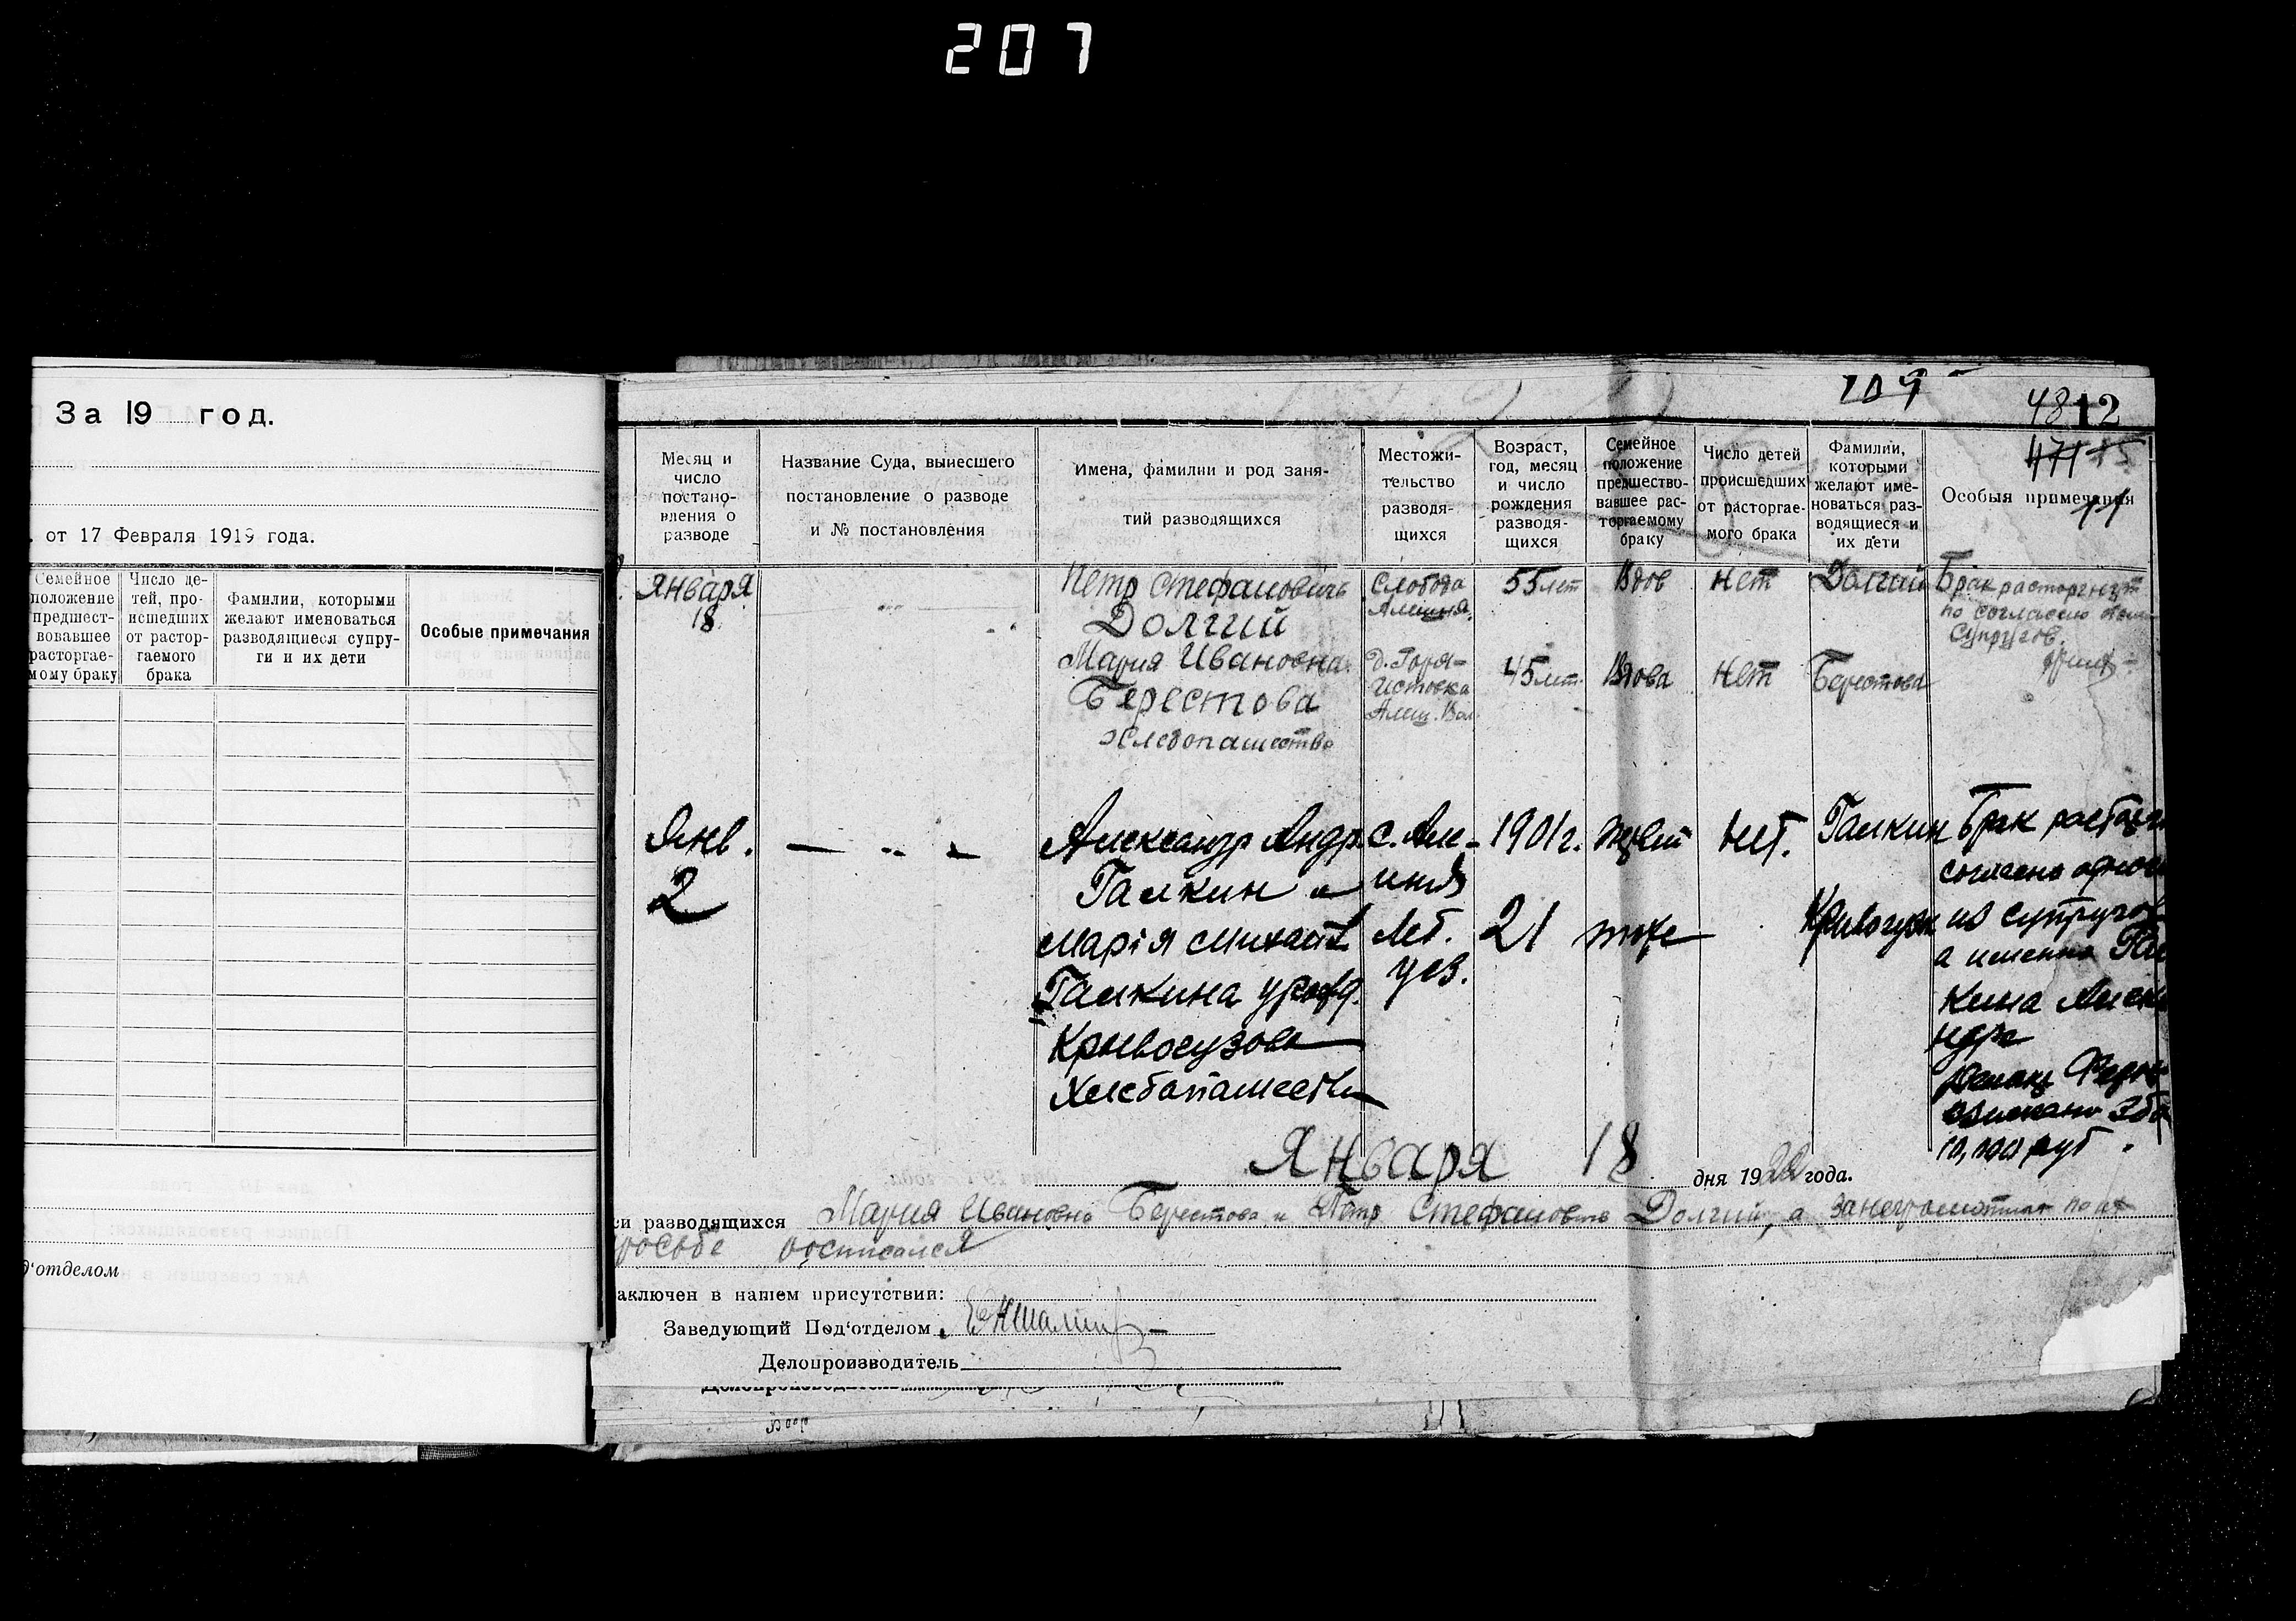 207
За 19 год.
. от 17 Февраля 1919 года.
Семейное положение предшест-вовавшее расторгае-мому браку
Число де-тей, про-исшедших от растор-гаемого брака
Фамилии, которыми желают именоваться разводящиеся супру-ги и их дети
Особые примечания
д'отделом
109
48 12
Месяц и число постано-вления о разводе
Название Суда, вынесшего постановление о разводе и № постановления
Имена, фамилии и род заня-тий разводящихся
Местожи-тельство разводя-щихся
Возраст, год, месяц и число рождения разводя-щихся
Семейное положение предшество-вавшее рас-торгаемому браку
Число детей происшедших от расторгае-мого брака
Фамилии, которыми желают име-новаться раз-водящиеся и их дети
Особыя примечания
Января
18
Петр Стефанович
Долгий
Мария Ивановна
Берестова
хлебопашество
Слобода
д. Горя-
Истовка
55 лет
45 лет
Вдов
Вдова
Нет
Нет
Долгий
Берестова
Брак расторгнут
по согласию
супругов.
Янв.
2
Александр Андр.
Галкин и
Марія Михайл
Галкина урожд.
Кривогузова
Хлебопашество
с. Али-
Лет.
уез.
1901 г.
21
тоже
Нет.
Галкин
Брак расторг
согласно одного
из супругов
а именно Гал
кина Алекса
ндра
взыскано
10,000 руб.
Января 18 дня 1922 года.
си разводящихся Мария Ивановна Берестова и Петр Стефанович Долгий, а за неграмотных по их
просьбе росписался
аключен в нашем присутствии:
Заведующий Под'отделом
Делопроизводитель
Делопроизводитель